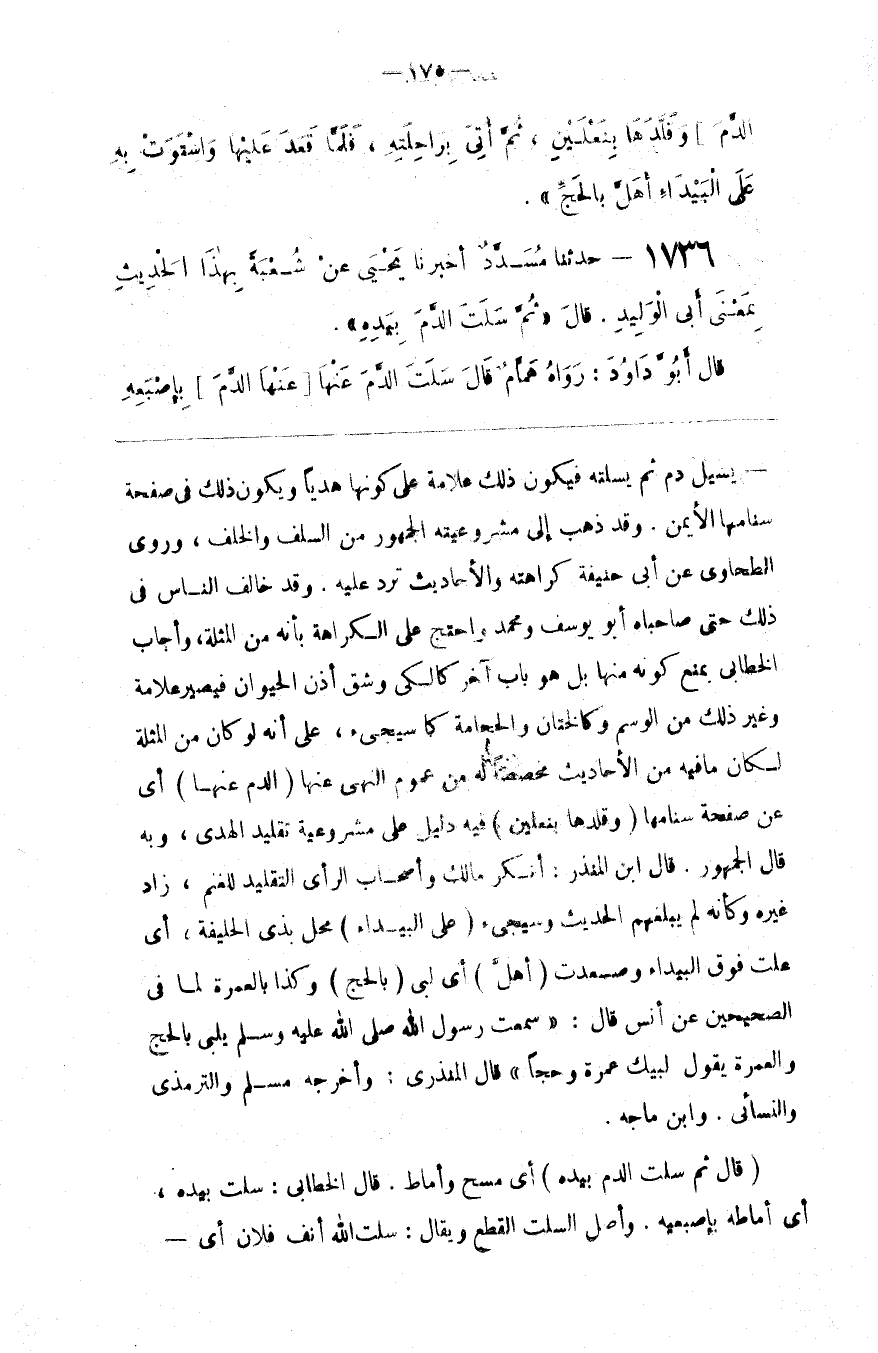 — ١٧٥ —
الدَّمَ ] وَقَلَّدَهَا بِنَعْلَـيْنِ ، ثُمَّ أُتِيَ بِرَاحِلَتِهِ ، فَلَمَّا قَعَدَ عَلَيْهَا وَاسْتَوَتْ بِهِ
عَلَى الْبَيْدَاءِ أَهَلَّ بالحَجِّ » .
١٧٣٦ — حدثنا مُسَـدَّدٌ أخبرنا يَحْـيَى عنْ شُـعْبَةَ بِهٰذَا الحَدِيثِ
بِمَعْـنَى أبى الْوَلِيدِ . قالَ «ثُمَّ سَلَتَ الدَّمَ بِيَدِهِ» .
قال أَبُو دَاوُدَ : رَوَاهُ هَمَّامٌ قَالَ سَلَتَ الدَّمَ عَنْهَا [ عَنْهَا الدَّمَ ] بِإِصْبَعِهِ
— يسيل دم ثم يسلته فيكون ذلك علامة على كونها هدياً ويكون ذلك فى صفحة
سنامها الأيمن . وقد ذهب إلى مشروعيته الجمهور من السلف والخلف ، وروى
الطحاوى عن أبى حنيفة كراهته والأحاديث ترد عليه . وقد خالف النـاس فى
ذلك حتى صاحباه أبو يوسف ومحمد واحتج على الـكراهة بأنه من المثلة، وأجاب
الخطابى بمنع كونه منها بل هو باب آخر كالـكى وشق أذن الحيوان فيصير علامة
وغير ذلك من الوسم وكالختان والحجامة كما سيجىء ، على أنه لو كان من المثلة
لـكان مافيه من الأحاديث مخصصاً له من عموم النهى عنها ( الدم عنهـا ) أى
عن صفحة سنامها ( وقلدها بنعلين ) فيه دليل على مشروعية تقليد الهدى ، وبه
قال الجمهور . قال ابن المنذر : أنـكر مالك وأصحـاب الرأى التقليد للغنم ، زاد
غيره وكأنه لم يبلغهم الحديث وسيجىء ( على البيـداء ) محل بذى الحليفة ، أى
علت فوق البيداء وصـعدت ( أهلَّ ) أى لبى ( بالحج ) وكذا بالعمرة لمـا فى
الصحيحين عن أنس قال : « سمعت رسول الله صلى الله عليه وسـلم يلبى بالحج
والعمرة يقول لبيك عمرة وحجاً » قال المنذرى : وأخرجه مسـلم والترمذى
والنسائى . وابن ماجه .
( قال ثم سلت الدم بيده ) أى مسح وأماط . قال الخطابى : سلت بيده ،
أى أماطه بإصبعيه . وأصل السلت القطع ويقال : سلت الله أنف فلان أى —